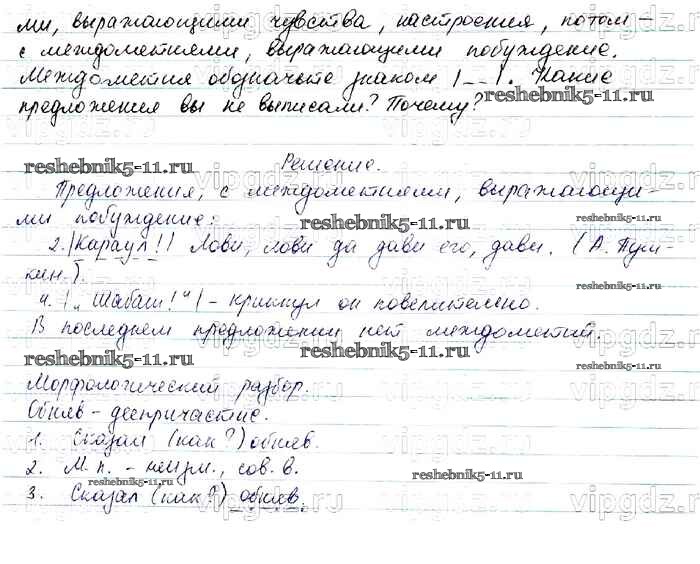 ми, выражающими чувства, настроения, потом –
с междометиями, выражающими побуждение.
Междометия обозначьте знаком |_ _|. Какие
предложения вы не выписали? Почему?
reshebnik5-11.ru
reshebnik5-11.ru
Решение.
Предложения, с междометиями, выражающи-
reshebnik5-11.ru
ми побуждение:
reshebnik5-11.ru
2. |Караул!| Лови, лови да дави его, дави. (А. Пуш-
кин.).
4. |„Шабаш!“| – крикнул он повелительно.
В последнем предложении нет междометий.
reshebnik5-11.ru
reshebnik5-11.ru
Морфологический разбор.
Обняв – деепричастие.
1. Сказал (как?) обняв.
2. М.п. – неизм., сов. в.
reshebnik5-11.ru
reshebnik5-11.ru
3. Сказал (как?) обняв.
vipgdz.ru